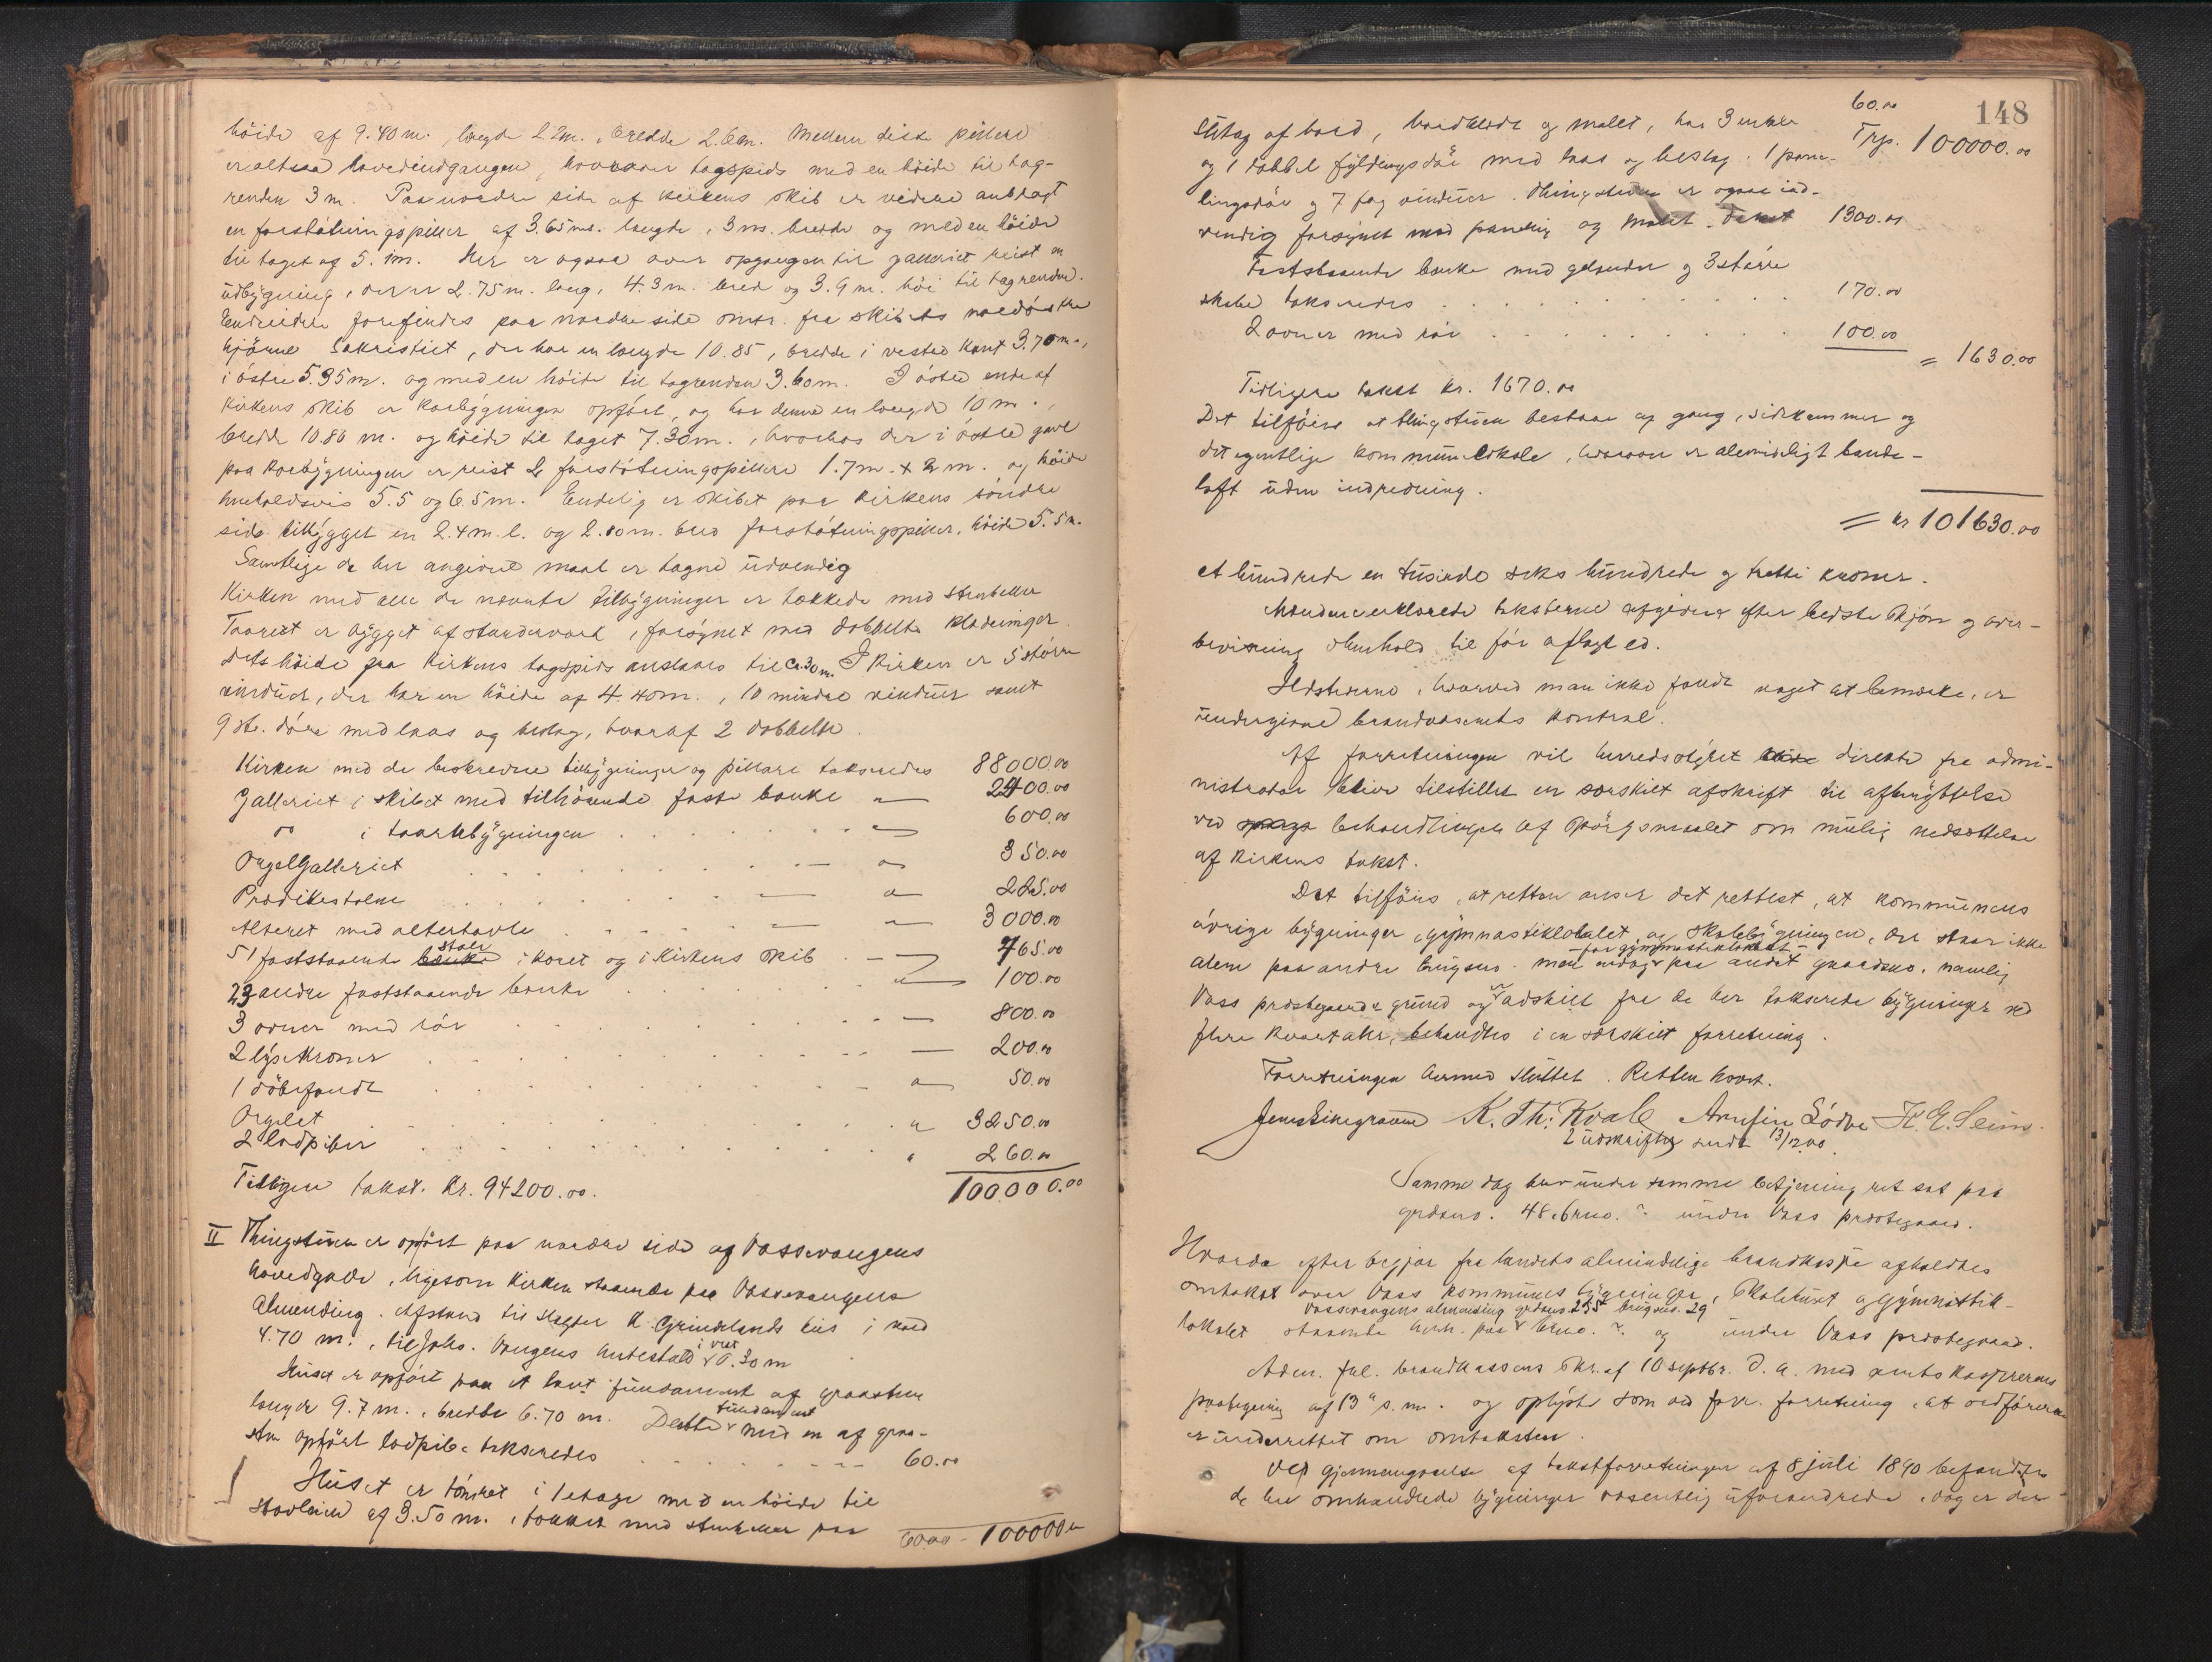 höide af 9.40 m. længde 2.2m., bredde 2.6m. Mellem disse pillere
er altsaa hovedindgangen, hvorover tagspids med en höide til tag-
renden 3 m. Paa nordre side af kirkens skib er videre anbragt
en forstötningspiller af 3.65 m. længde, 3 m. bredde og med en höide
til taget af 5.1m. Her er ogsaa over opgangen til galleriet reist en
udbygning, der er 2.75 m. lang, 4.3 m. bred og 3.9 m. höi til tagrenden.
Endvidere forefindes paa nordre side omtr. fra skibets nordöstre
hjörne Sakristiet, der har en længde 10.85, bredde i vestre kant 3.70 m.,
i östre 5.35 m. og med en höide til tagrenden 3.60 m. I östre ende af
kirkens skib er korbygningen opfört, og har denne en længde 10 m.,
bredde 10.86 m. og höide til taget 7.30 m., hvorhos der i östre gavl
paa korbygningen er reist 2 forstötningspillere 1.7 m. x 2 m. og höide
henholdsvis 5.5 og 6.5 m. Endelig er skibet paa kirkens söndre
side tilbygget en 2.4 m. l. og 2.10 m. bred forstötningspiller, höide 5.5 m.
Samtlige de her angivne maal er tagne udvendig
Kirken med alle de nævnte tilbygninger er tækkede med stenheller
Taarnet er bygget af standerværk, forsynet med dobbelte klædninger.
Dets höide fra kirkens tagspids ansláaes til ca. 30 m. I kirken er 5 större
vinduer, der har en höide af 4.40 m., 10 mindre vinduer samt
9 st. döre med laas og beslag, hvoraf 2 dobbelte.
Kirken med de beskrevne tilbygninger og pillare takseredes 88000.00
Galleriet i skibet med tilhörende faste bænke 2400.00
do i taarnbygningen 600.00
Orgelgalleriet 350.00
Prædikestolen 225.00
Alteret med altertavle 3000.00
stole
51 faststaaende bænke i koret og i kirkens skib 765.00
23 andre faststaaende bænke 100.00
3 ovner med rör 800.00
2 lysekroner 200.00
1 döbefondt 50.00
Orgelet 3250.00
2 lodpiber 260.00
Tidligere takst. Kr. 94200.00. 100.000.00
II Thingstuen er opfört paa nordre side af Vossevangens
hovedgade, ligesom kirken staaende paa Vossevangens
Almending. Afstand til K. Grindlands hus i nord
i vest
4.70 m., til Johs. Vangens hestestald 6.30 m
Huset er opfört paa et lavt fundament af graasten
længde 9.7 m., bredde 6.70 m. Dette med en af graa-
fundament
sten opfört lodpibe takseredes 60.00
Huset er tömret i 1 etage med en höide til
stavlein af 3.50 m., tækket med stenheller paa
60.00 - 100000.00
148
60.00
Trp. 100000.00
slutag af bord, bordklædt og malet, har 3 enkle
og 1 dobbel fyldingsdör med laas og beslag, 1 pane-
lingsdör og 7 fag vinduer. Thingstuen er ogsaa ind-
vendig forsynet med paneling og malet. 1300.00
Faststaaende bænke med gelænder og 3 större
skabe takseredes 170.00
2 ovner med rör 100.00
= 1630.00
Tidligere takst kr. 1670.00
Det tilföies at thingstuen bestaar af gang, sidekammer og
det egentlige kommunelokale, hvorover er alemindeligt lande-
loft uden indredning.
= kr 101630.00
et hundrede en tusinde seks hundrede og tretti kroner.
Mændene erklærede taksterne afgivne efter bedste skjön og over-
bevisning i henhold til för aflagt ed.
Ildstederne, hvorved man ikke fandt noget at bemærke, er
undergivne brandvæsenets kontrol.
Af forretningen vil herredsstyret direkte fra admi-
nistrator blive tilstillet en særskilt afskrift til afbenyttelse
ved behandlingen af spörgsmaalet om mulig nedsættelse
af kirkens takst.
Det tilföies, at retten anser det rettest, at kommunens
övrige bygninger, gymnastiklokalet og skolebygningen, der staar ikke
- for gymnastiklokalet -
alene paa andre brugsno. men endog paa andet gaardsno. namlig
Voss prestegaards grund og er adskilt fra de her takserede bygninger ved
flere kvartaler, behandles i en særskilt forretning.
Forretningen hermed sluttet. Retten hævet.
K. Th: Kvale H. G. Seim.
2 udskrifter sendt 13/12 00.
Samme dag blev under samme betjening ret sat paa
grdsno. 48, brno. 2. under Voss prestegaard.
Hvorda efter begjær fra landets almindelige brandkasse afholdtes
omtakst over Voss kommunes bygninger, Skolehuset og Gymnastik-
Vossevangens almending grdsno. 255 brugsno. 29
lokalet staaende henh. paa brno. 2. og under Voss prestegaard.
Adm. frl. brandkassens skr. af 10 septbr. d. a. med amtskasserens
paategning af 13de s. m. og oplyste som ved forr. forretning, at ordföreren
er underrettet om omtaksten.
Ved gjennemgaaelse af takstforretningen af 8 juli 1890 befandtes
de her omhandlede bygninger væsentlig uforandrede, dog er der